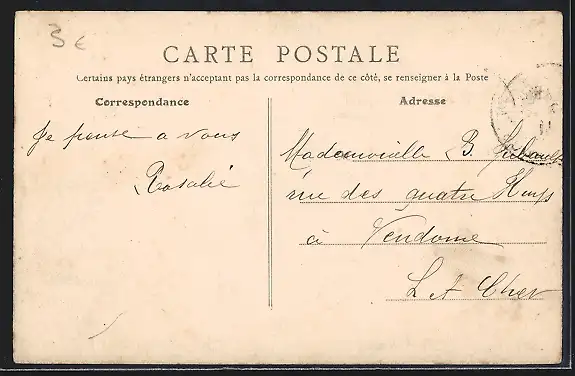 5 €
CARTE POSTALE
Certains pays étrangers n'acceptent pas la correspondance de ce côté, se renseigner à la Poste
Correspondance
Adresse
Je pense a vous
Rosalie
Mademoiselle B.
rue des quatre Huys
à Vendome
L et Cher